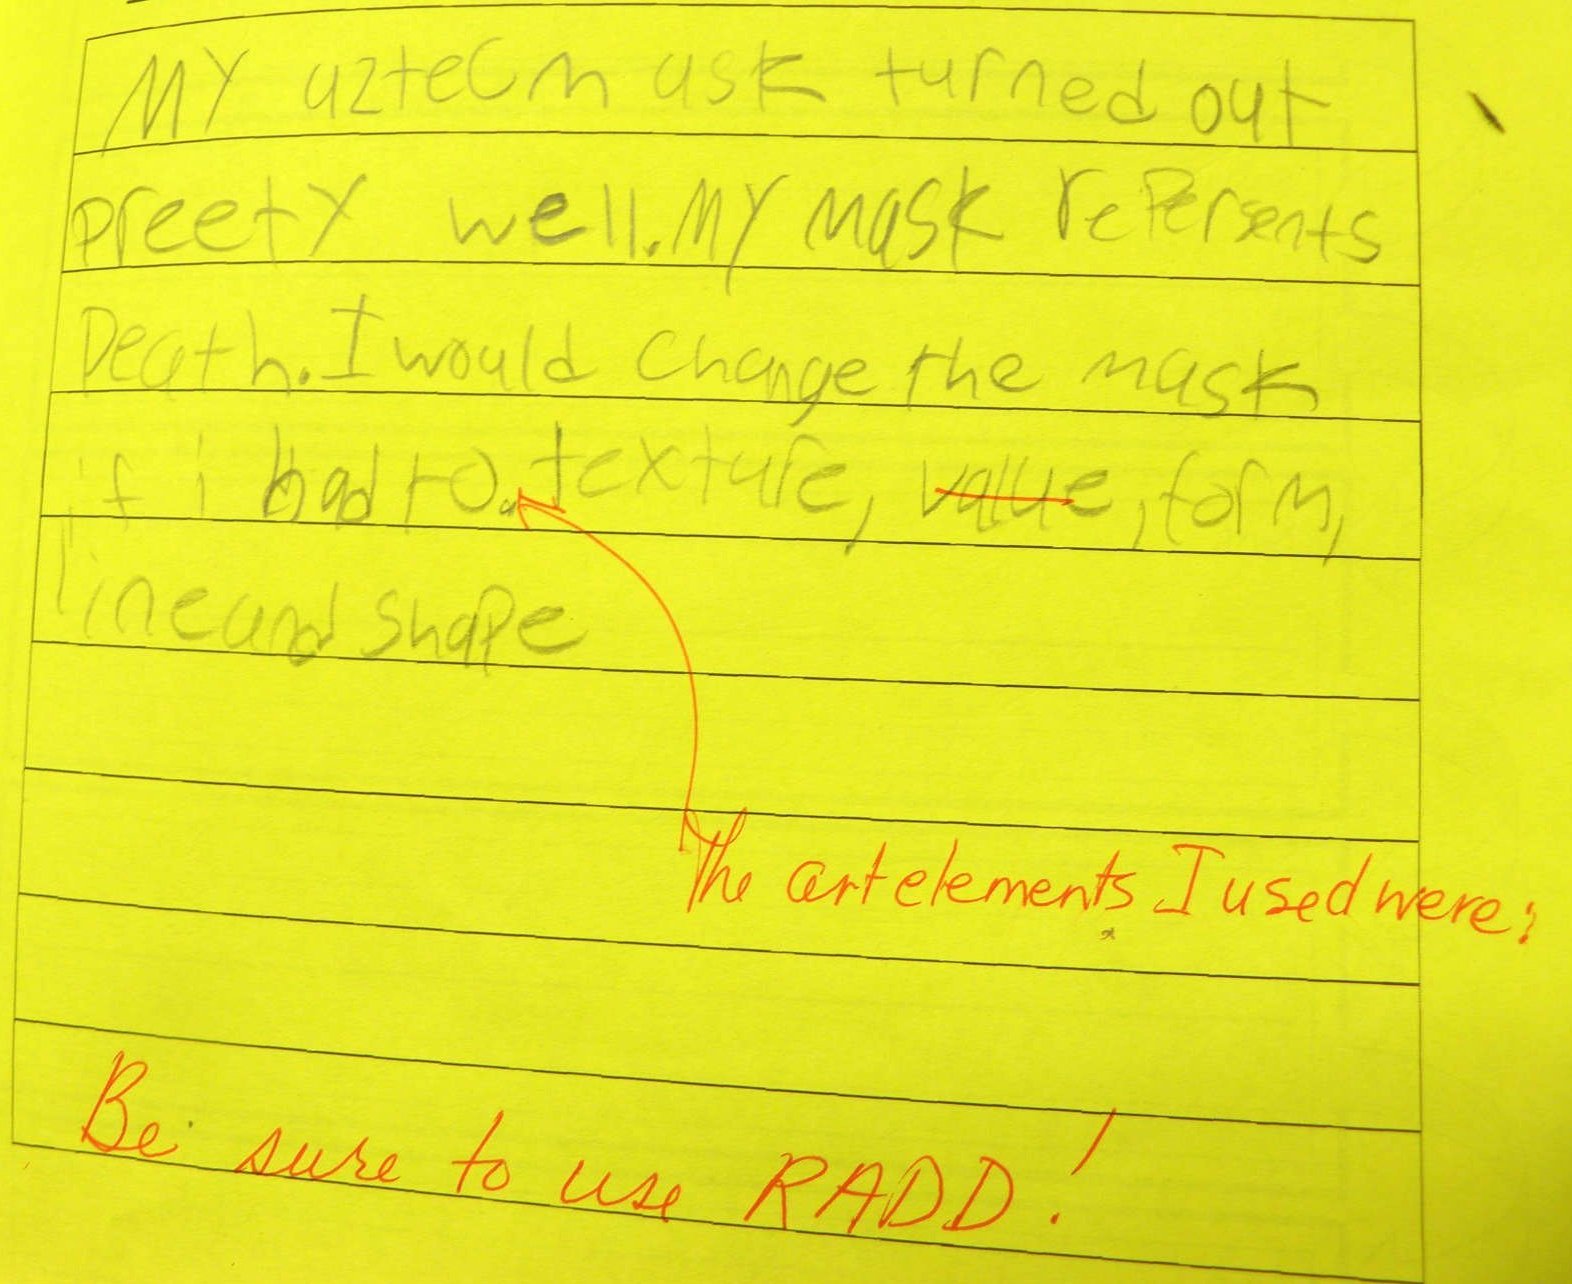 MY aztec mask turned out
preety well. MY mask repersents
Death. I would change the mask
if i had to. texture, value, form,
line and shape
The art elements I used were:
Be sure to use RADD!